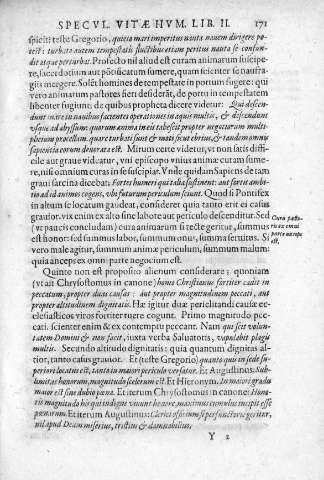 SPECVL. VITÆ HVM. LIB. II. 171
spicit: teste Gregorio, quieta mari imperitus nauta nauem dirigere po-
test: turbata autem tempestatis fluctibus etiam peritus nauta se confun-
dit atque perturbat. Profecto nil aliud est curam animarum suscipe-
re, sacerdotium aut pontificatum sumere, quam scienter se naufra-
giis mergere. Solet homines de tempestate in portum fugere: qui
vero animarum pastores fieri desiderat, de portu in tempestatem
libenter fugiunt: de quibus propheta dicere videtur: Qui descen-
dunt mare in nauibus facientes operationes in aquis multis, & descendunt
vsque ad abyssum: quorum anima in eis tabescit propter
pluuium procellam. quare turbati sunt & moti sicut ebrius, & tandem omnis
sapientia eorum deuorata est. Mirum certe videtur, vt non satis diffi-
cile aut graue videatur, vni episcopo vnius animæ curam sume-
re, nisi omnium curas in se suscipiat. Vnde quidam Sapiens de tam
graui sarcina dicebat: Fortes humeri qui talia sustinent: aut fortes ambi-
tio ad id animos cogens, vbi futurum periculum sciunt. Quod si Pontifex
in altum se locatum gaudeat, consideret quia tanto erit ei casus
grauior. vix enim ex alto sine labore aut periculo descenditur. Sed
(vt paucis concludam) cura animarum si recte geritur, summus
est honor: sed summus labor, summum onus, summa seruitus. Si
vero male agitur, summum animæ periculum, summum malum:
quia anceps ex omni parte negocium est.
Cura pasto-
ris ex omni
parte anceps
est.
Quinto non est proposito alienum considerare; quoniam
(vt ait Chrysostomus in canone) homo Christianus fortiter cadit in
peccatum, propter duas causas: aut propter magnitudinem peccati, aut
propter altitudinem dignitatis. Ha igitur periculosæ causæ ec-
clesiasticos viros fortiter tuere cogunt. Primo magnitudo pec-
cati. scienter enim & ex contemptu peccant. Nam qui scit volun-
tatem Domini & non facit, iuxta verba Saluatoris, vapulabit plagis
multis. Secundo altitudo dignitatis: quia quantum dignitas al-
tior, tanto casus grauior. Et (teste Gregorio) quanto quis in sede su-
periori locatus est, tanto in maiori periculo versatur. Et Augustinus: Sub-
limitas honorum, magnitudo scelerum est. Et Hieronym. In maiori gradu
maior est sine dubio pœna. Et iterum Chrysostomus in canone: Hono-
ris magnitudo his qui indigne viuunt hauire, maximus cumulus incipit esse
pœnarum. Et iterum Augustinus: Clerici officium si perfunctorie geritur,
nil apud Deum miserius, tristius & damnabilius.
Y 2